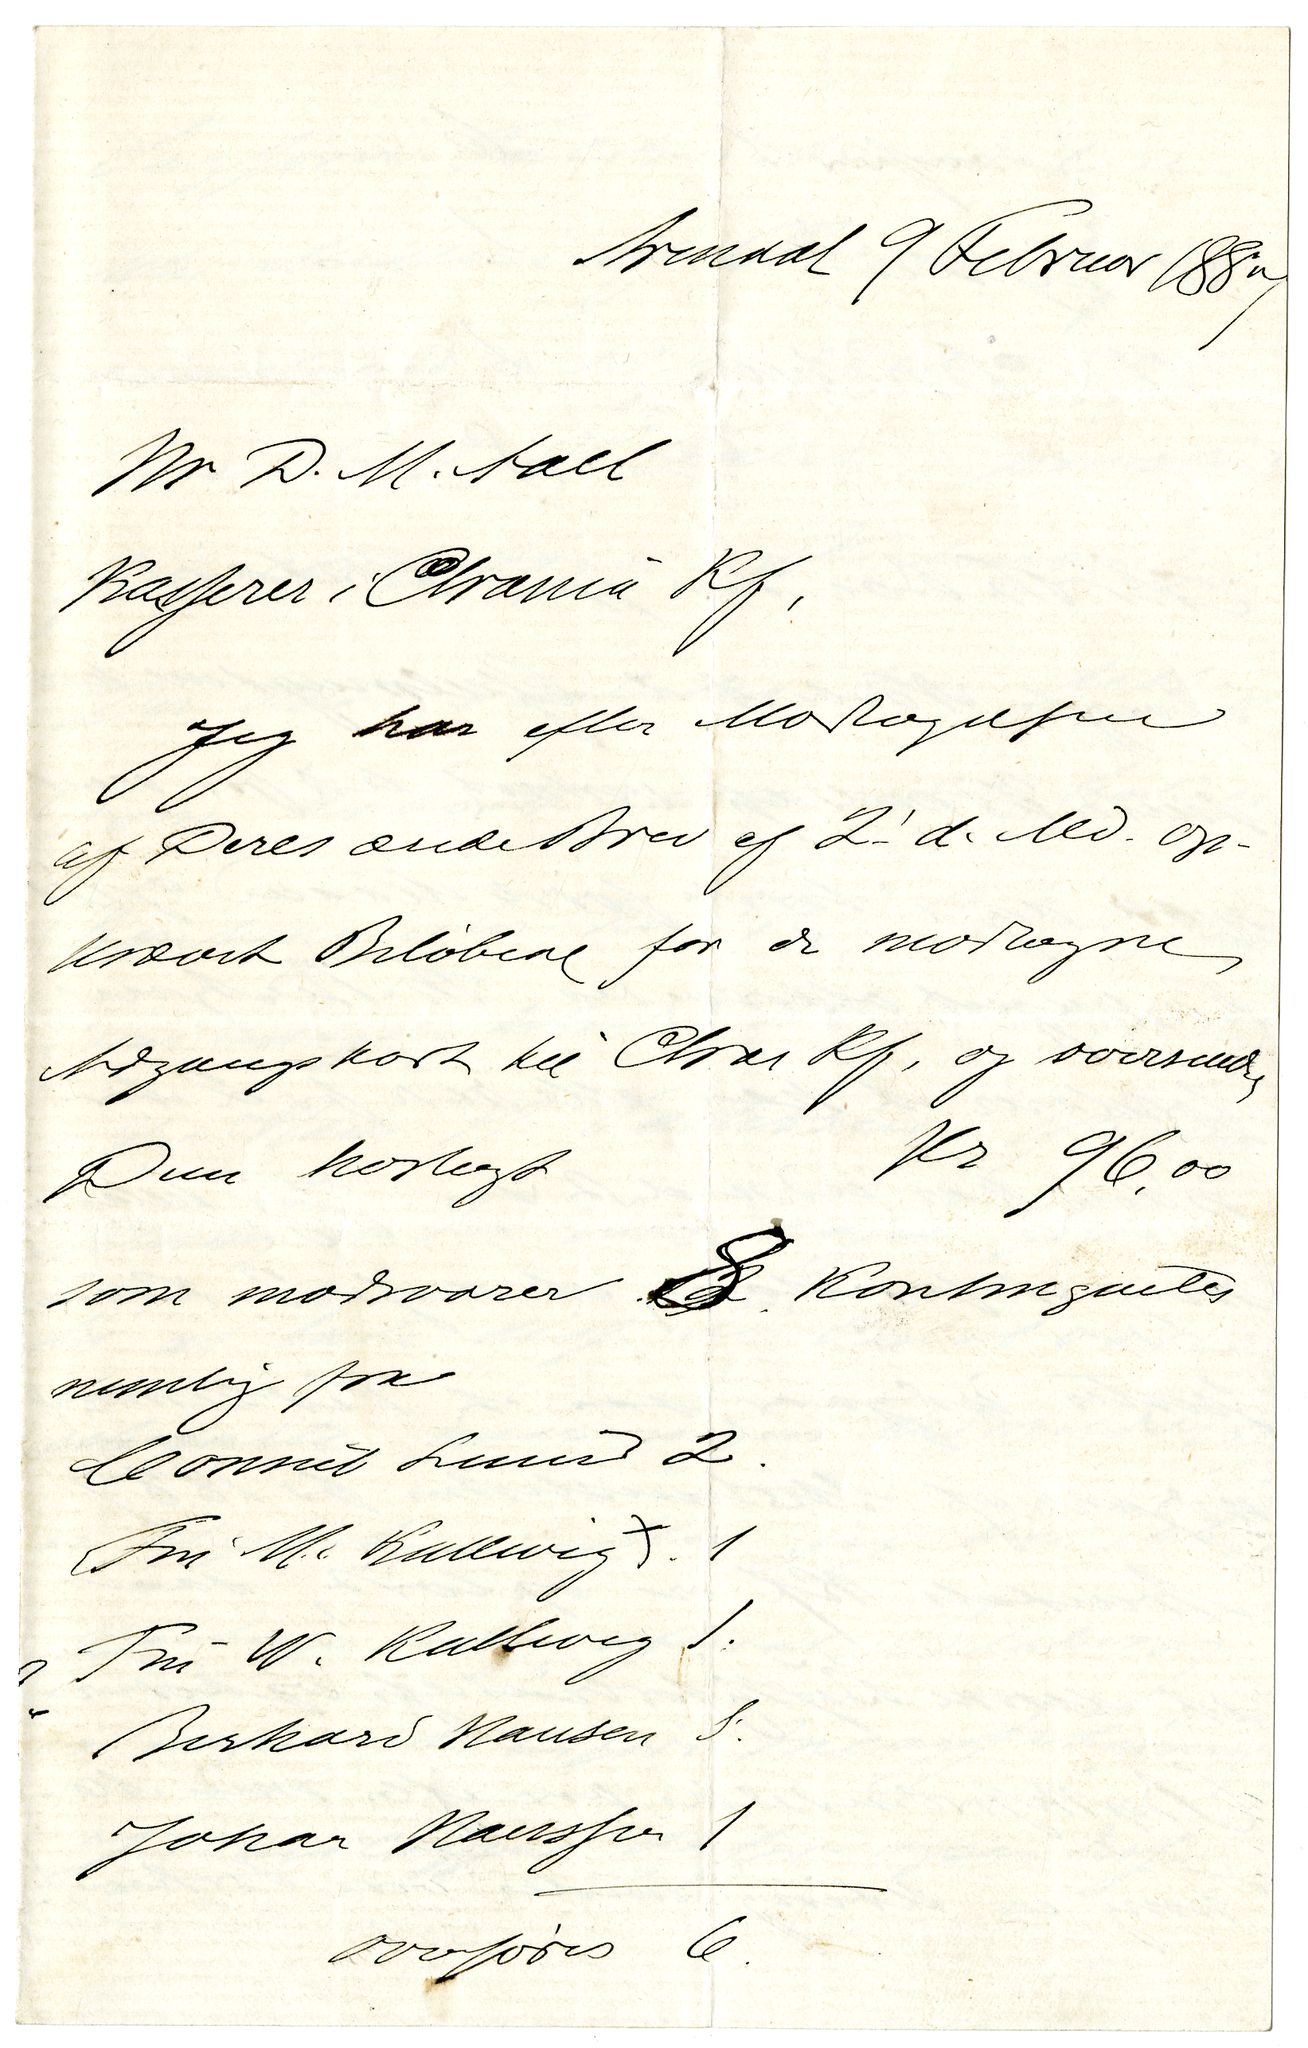 Arendal 9 Februar 1887
Hr D. M. Aall
Kasserer i Chrania Kf,
Jeg har efter Modtagelsen
af Deres ærede Brev af 2' d. Md. op-
krævet Beløbene for de modtagne
Adgangskort til Chra Kf, og oversender
Dem hoslagt Kr 96,00
som modsvarer 8 Kontingenter
nemlig fra
Consul Lund 2.
Fru M. Kallevig x. 1
Fru W. Kallevig 1.
Hansen 1.
Johan 1
overføres 6.